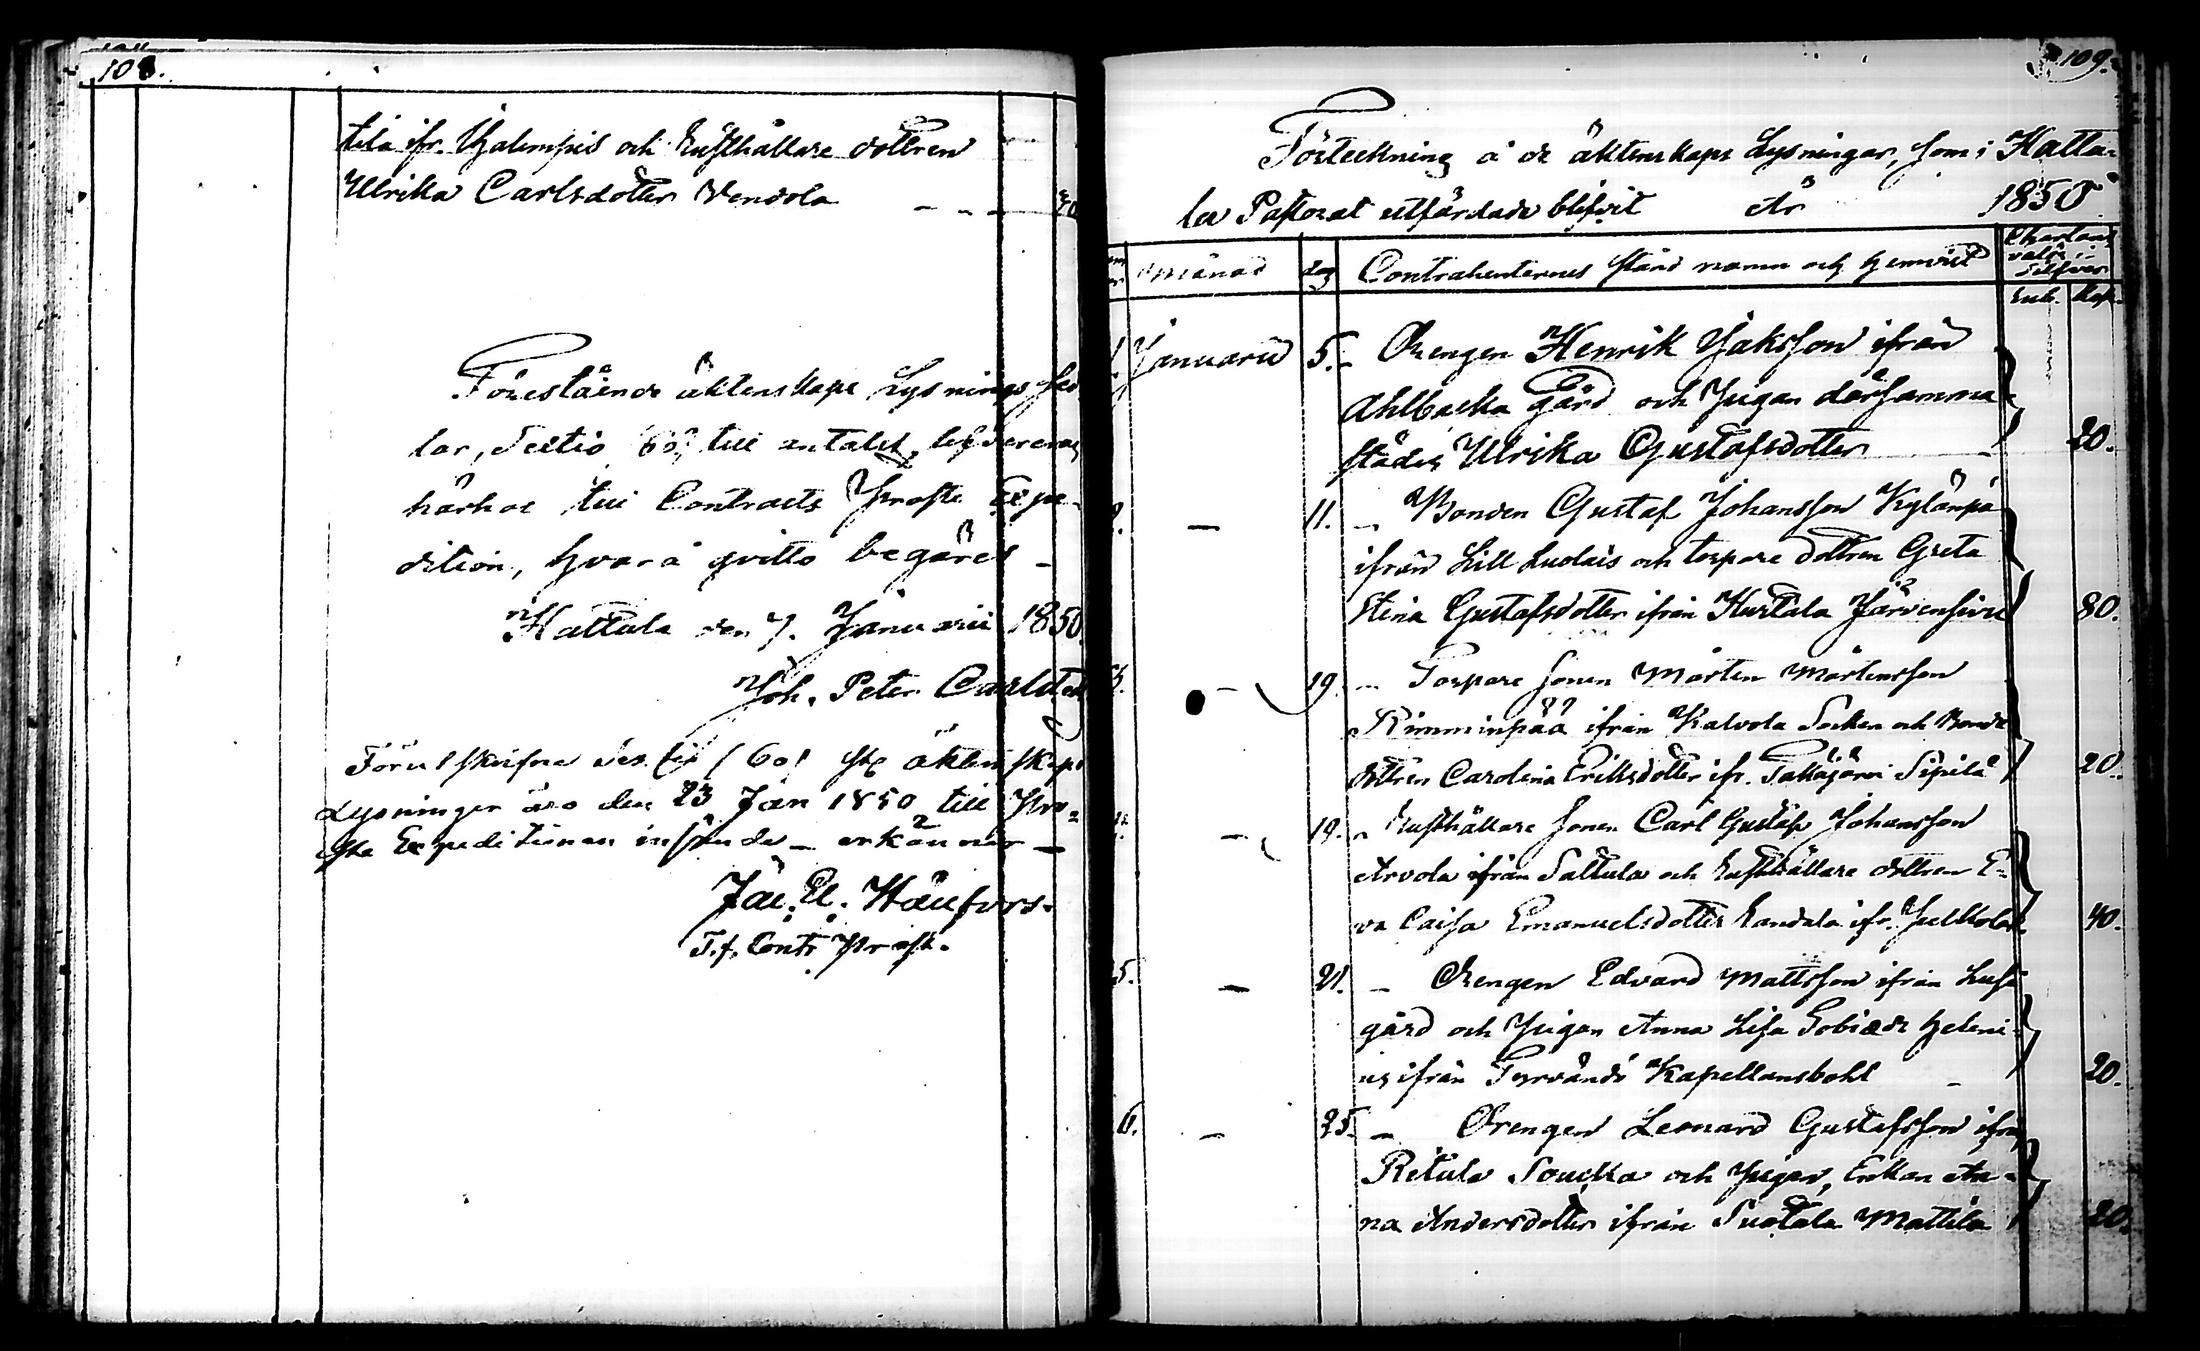 108.
tila ifr. Hjalempis och Rusthållare dottren
Ulrika Carlsdotter Vendola - - - 40
Förestående äktenskaps Lysnings sed
lar, Sextio (60) till antalet, levereras
härhos till Contracts Prosts Expe-
dition, hvarå qvitto begäres -
Hattula den 7. Januarii 1850.
Joh. Peter Carlstedt
Förutskrifne sextio (60) st. äktenskaps
Lysningar äro den 23 Jan 1850 till Pro=
sts Expeditionen insände - erkänner -
T.f. Contr. Prost.
109.
Förteckning å de äktenskaps Lysningar, som i Hattu=
la Pastorat utfärdade blifvit År 1850
månad dag Contrahenternes stånd namn och hemvist Chartans valör i Silfver
Rub. Kop.
1. Januarii 5. - Drengen Henrik Isaksson ifrån
Ahlbacka Gård och Pigan därsamma-
städes Ulrika Gustafsdotter - 20.
2. - 11. - Bonden Gustaf Johansson Kylänpä
ifrån Lill Luolais och torpare dottren Greta
Stina Gustafsdotter ifrån Hurtala Järvensivu 80.
3. - 19. - Torpare Sonen Mårten Mårtensson
Rimminpää ifrån Kalvola Socken och Bonde
dottren Carolina Eriksdotter ifr. Takajärvi Sipilä 20.
4. - 19. - Rusthållare Sonen Carl Gustaf Johansson
Arvola ifrån Sattula och Rusthållare dottren E=
va Caisa Emanuelsdotter Eandala ifr. Pelkola 40.
5. - 21. - Drengen Edvard Mattsson ifrån Lusi
gård och Pigan Anna Lisa Tobiædr Heleni-
us ifrån Tyrvändö Kapellansbohl - 20.
6. - 25. - Drengen Leonard Gustafsson ifrån
Retula Soucka och Pigan, Enkan An-
na Andersdotter ifrån Suotala Mattila 20.